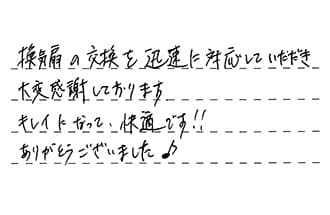 換気扇の交換を迅速に対応していただき
大変感謝しております
キレイになって、快適です!!
ありがとうございました♪